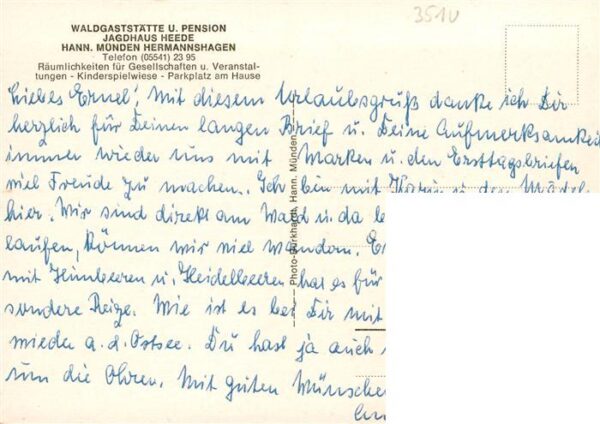 351U
WALDGASTSTÄTTE U. PENSION
JAGDHAUS HEEDE
HANN. MÜNDEN HERMANNSHAGEN
Telefon (05541) 23 95
Räumlichkeiten für Gesellschaften u. Veranstal-
tungen - Kinderspielwiese - Parkplatz am Hause
Liebes Ernel! Mit diesem Urlaubsgruß danke ich Dir
herzlich für Deinen langen Brief u. Deine Aufmerksamkeit
immer wieder uns mit Marken u. den Ersttagsbriefen
viel Freude zu machen. Ich bin mit Karin u. den Mädel
hier. Wir sind direkt am Wald u. da
laufen, können wir viel wandern.
mit Himbeeren u. Heidelbeeren hat es für
sondere Reize. Wie ist es bei Dir mit
wieder a. d. Ostsee. Du hast ja auch
um die Ohren. Mit guten Wünschen
Photo-Burkhardt, Hann. Münden